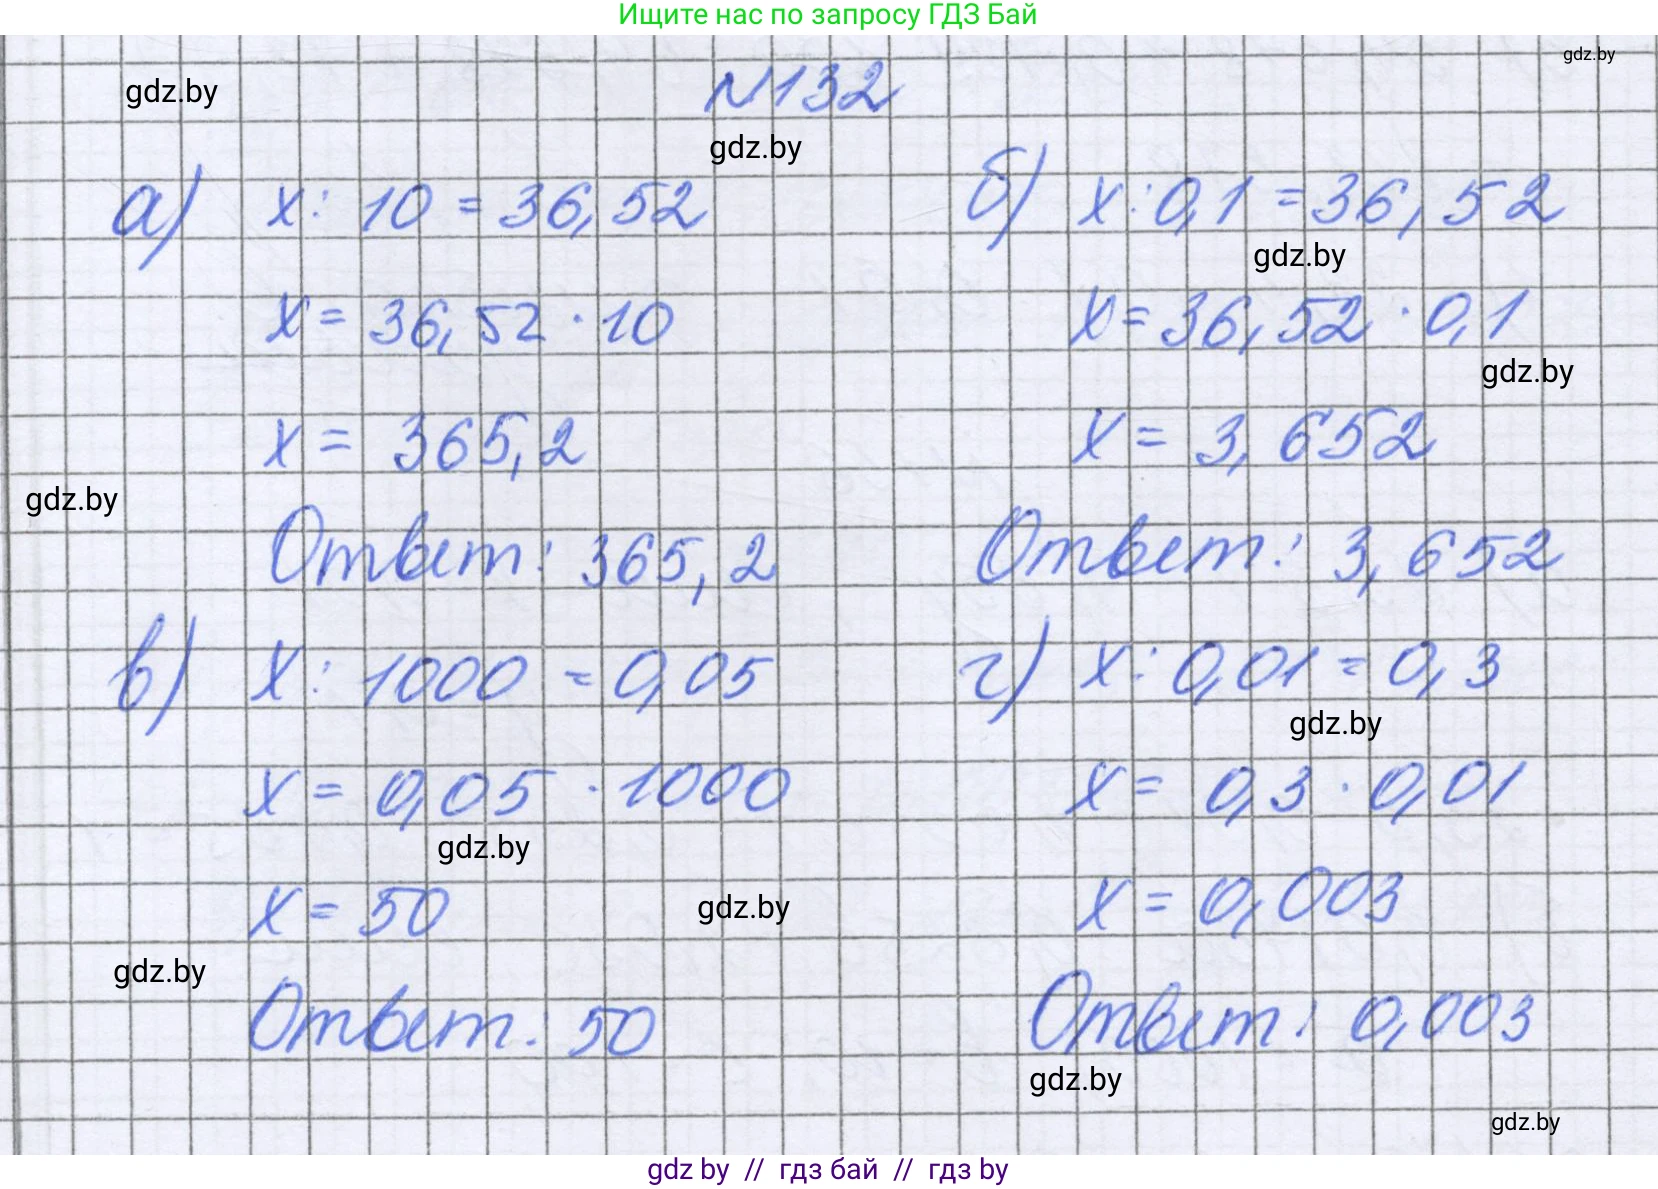 Ищите нас по запросу ГДЗ Бай
gdz.by
gdz.by
№132
gdz.by
а) x : 10 = 36,52
x = 36,52 · 10
x = 365,2
gdz.by
Ответ: 365,2
б) x : 0,1 = 36,52
gdz.by
x = 36,52 · 0,1
gdz.by
x = 3,652
Ответ: 3,652
в) x : 1000 = 0,05
x = 0,05 · 1000
gdz.by
x = 50
gdz.by
gdz.by
Ответ: 50
г) x : 0,01 = 0,3
gdz.by
x = 0,3 · 0,01
x = 0,003
Ответ: 0,003
gdz.by
gdz.by
gdz by // гдз бай // гдз by